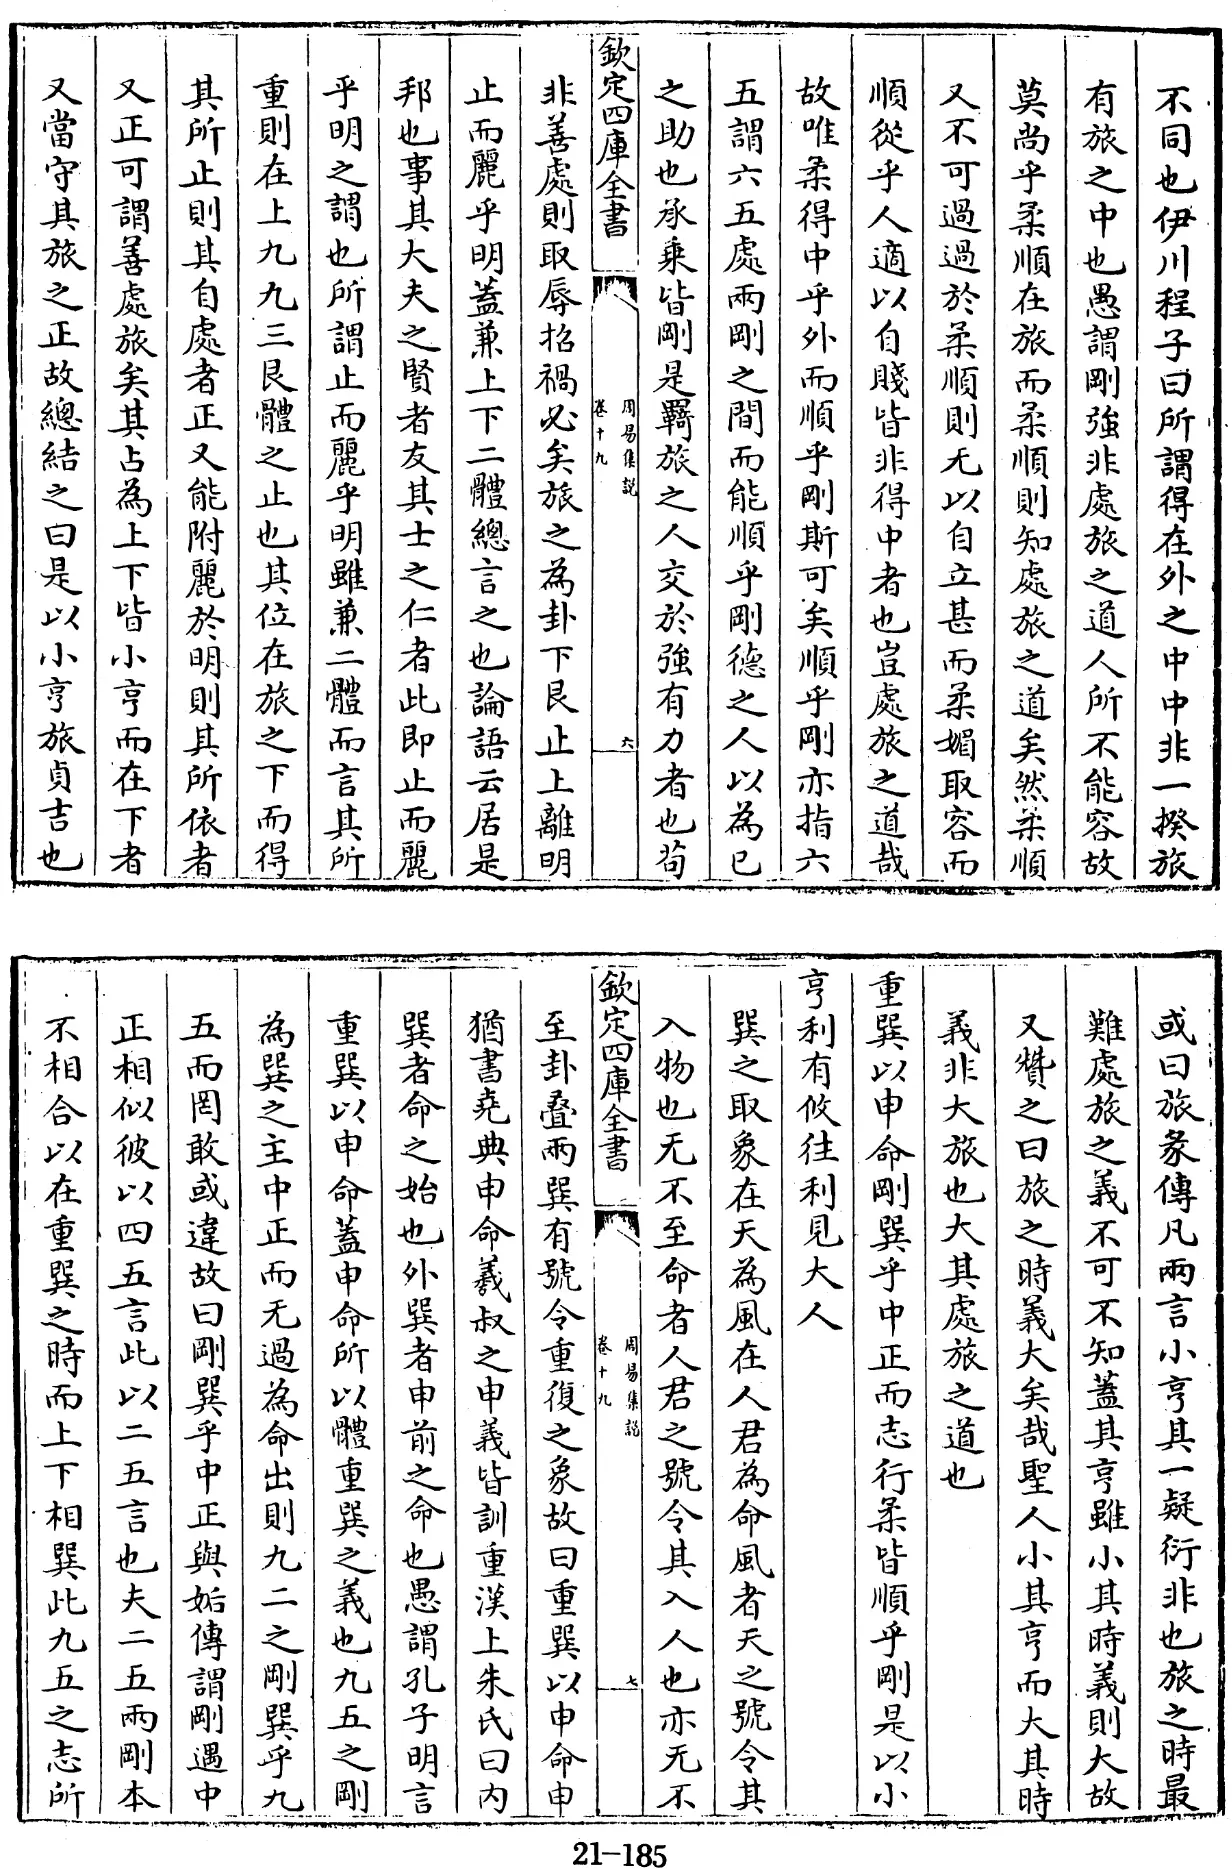 不同也伊川程子曰所謂得在外之中中非一揆旅
有旅之中也愚謂剛強非處旅之道人所不能容故
莫尚乎柔順在旅而柔順則知處旅之道矣然柔順
又不可過過於柔順則无以自立甚而柔媚取容而
順從乎人適以自賤皆非得中者也豈處旅之道哉
故唯柔得中乎外而順乎剛斯可矣順乎剛亦指六
五謂六五處兩剛之間而能順乎剛德之人以為已
之助也承乗皆剛是羇旅之人交於強有力者也茍
欽定四庫全書
周易集說
卷十九
六
非善處則取辱招禍必矣旅之為卦下艮止上離明
止而麗乎明蓋兼上下二體總言之也論語云居是
邦也事其大夫之賢者友其士之仁者此即止而麗
乎明之謂也所謂止而麗乎明雖兼二體而言其所
重則在上九九三艮體之止也其位在旅之下而得
其所止則其自處者正又能附麗於明則其所依者
又正可謂善處旅矣其占為上下皆小亨而在下者
又當守其旅之正故總結之曰是以小亨旅貞吉也
或曰旅彖傳凡兩言小亨其一疑衍非也旅之時最
難處旅之義不可不知蓋其亨雖小其時義則大故
又贊之曰旅之時義大矣哉聖人小其亨而大其時
義非大旅也大其處旅之道也
重巽以申命剛巽乎中正而志行柔皆順乎剛是以小
亨利有攸往利見大人
巽之取象在天為風在人君為命風者天之號令其
入物也无不至命者人君之號令其入人也亦无不
欽定四庫全書
周易集說
卷十九
七
至卦疊兩巽有號令重復之象故曰重巽以申命申
猶書堯典申命羲叔之申義皆訓重漢上朱氏曰内
巽者命之始也外巽者申前之命也愚謂孔子明言
重巽以申命蓋申命所以體重巽之義也九五之剛
為巽之主中正而无過為命出則九二之剛巽乎九
五而罔敢或違故曰剛巽乎中正與姤傳謂剛遇中
正相似彼以四五言此以二五言也夫二五兩剛本
不相合以在重巽之時而上下相巽此九五之志所
21-185